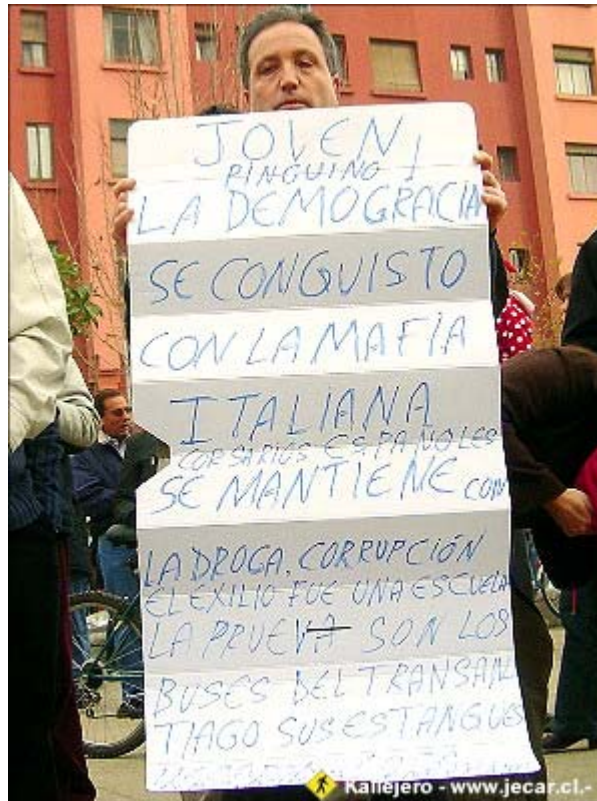 JOVEN
PINGUINO!
LA DEMOGRACIA
SE CONGUISTO
CON LA MAFIA
ITALIANA
CORSARIOS ESPAÑOLES
SE MANTIENE CON
LA DROGA. CORRUPCIÓN
EL EXILIO FUE UNA ESCUELA
LA PRUEVA SON LOS
BUSES DEL TRANSAN
TIAGO SUS ESTANGUES
Kallejero - www.jecar.cl.-